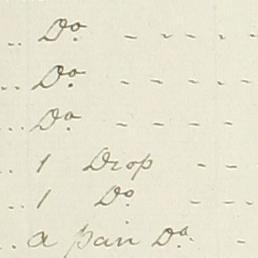 .. Do. - - - -
.. Do. - - - -
... Do. - - - -
.. 1 Drop - -
.. 1 Do. - - -
.. a pair Do. -